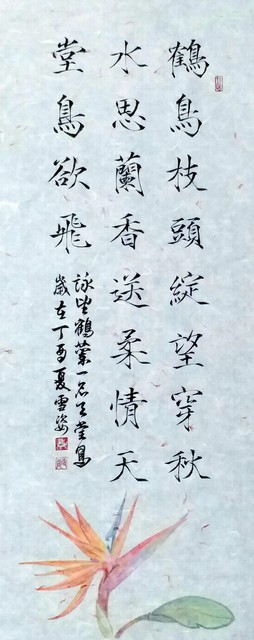 鶴鳥枝頭綻望穿秋
水思蘭香送柔情天
堂鳥欲飛
詠望鶴蘭一名天堂鳥
歲在丁酉夏雪姿